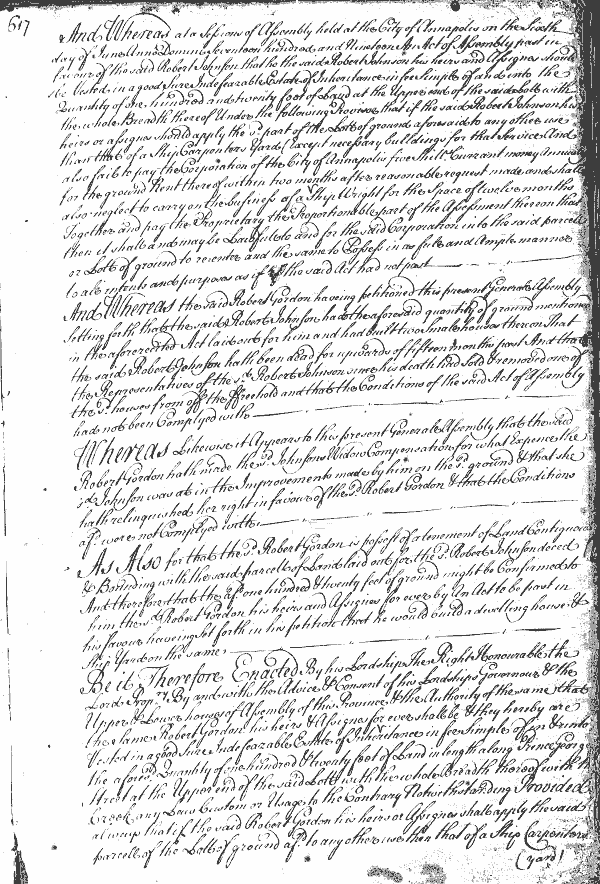 617
And Whereas at a Sessions of Assembly held at the City of Annapolis on the Sixth
day of June Anno Domini Seventeen hundred and Nineteen An Act of Assembly past in
favour of the said Robert Johnson that he the said Robert Johnson his heirs and Assigns should
be Vested in a good Sure Indefeazable Estate of Inheritance in fee Simple of and into the
Quantity of one hundred and twenty foot of Land at the Upper end of the said Lotts with
the whole Breadth thereof Under the following Proviso that if the said Robert Johnson his
heirs or assigns should apply the sd. part of the Lotts of ground aforesaid to any other use
than that of a Ship Carpenters Yard (Except necessary buildings for that Service And
also fail to pay the Corporation of the City of Annapolis five Shills. Currant money Annually
for the ground Rent thereof within two months after reasonable request made and shall
also neglect to carry on the business of a Ship Wright for the Space of twelve months
Together and pay the Proprietary the Proportionable part of the Assessment thereon that
then it shall and may be Lawfull to and for the said Corporation into the said parcell
or Lotts of ground to reenter and the same to Possess in as full and Ample manner
to all intents and purposes as if the said Act had not past
And Whereas the said Robert Gordon having petitioned this present Generall Assembly
Setting forth that the said Robert Johnson had the aforesaid quantity of ground mentioned
in the aforerecited Act laid out for him and had built two Small houses thereon That
the said Robert Johnson hath been dead for upwards of fifteen months past And that
the Representatives of the sd. Robert Johnson since his death had Sold & removed one of
the sd. houses from off the ffreehold and that the Conditions of the said Act of Assembly
had not been Complyed with
Whereas Likewise it Appears to this present Generall Assembly that the said
Robert Gordon hath made the sd. Johnsons Widow Compensation for what Expence the
sd. Johnson was at in the Improvements made by him on the sd. ground & that she
hath relinquished her right in favour of the sd. Robert Gordon & that the Conditions
afd. were not Complyed with
As Also for that the sd. Robert Gordon is possest of a tenement of Land Contiguous
& Bounding with the said parcell of Land laid out for the sd. Robert Johnson deced
And therefore that the afd. one hundred & twenty feet of ground might be Confirmed to
him the sd. Robert Gordon his heirs and Assigns for ever by An Act to be past in
his favour haveing Set forth in his petition that he would build a dwelling house &
Ship Yard on the same
Be it Therefore Enacted By his Lordship The Right Honourable the
Lord Propry. By and with the Advice & Consent of his Lordships Governour & the
Upper & Lower houses of Assembly of this Province & the Authority of the same that
the same Robert Gordon his heirs & Assigns for ever shall be & they hereby are
Vested in a good Sure Indefeazable Estate of Inheritance in fee Simple of in & unto
the aforesd. Quantity of one hundred & twenty feet of Land in length along Prince George
Street at the Upper end of the said Lotts with the whole Breadth thereof with the
Creek any Law Custom or Usage to the Contrary Notwithstanding Provided
always that if the said Robert Gordon his heirs or Assigns shall apply the said
parcell of the Lotts of ground afd. to any other use then that of a Ship Carpenters
(yard)